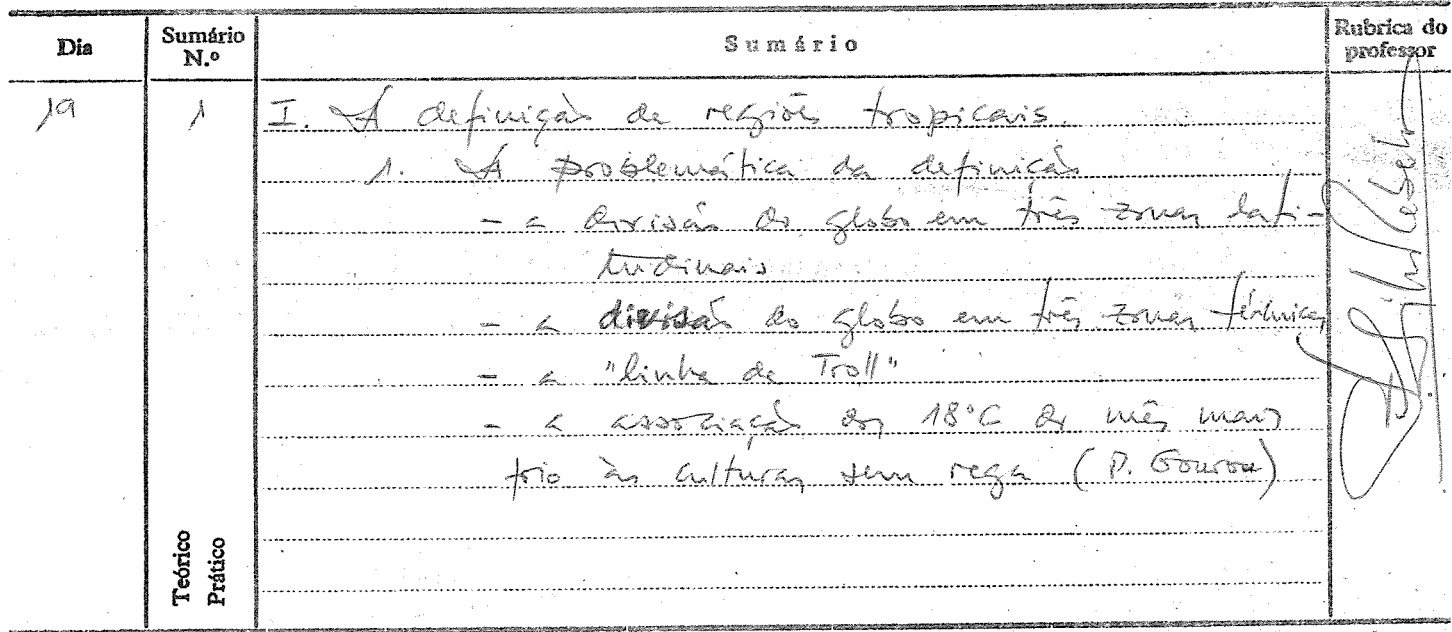 Dia
Sumário N.º
Sumário
Rubrica do professor
19
1
I. A definição de regiões tropicais.
1. A problemática da definição
- a divisão do globo em três zonas lati-
tudinais
- a divisão do globo em três zonas térmicas
- a "linha de Troll"
- a associação dos 18°C do mês mais
frio às culturas sem rega (P. Gourou)
Teórico
Prático